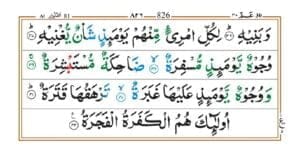 وَبَنِيْهِ ﴿۳۶﴾ لِكُلِّ امْرِئٍ مِّنْهُمْ يَوْمَئِذٍ شَاْنٌ يُّغْنِيْهِ ﴿۳۷﴾
وُجُوْهٌ يَّوْمَئِذٍ مُّسْفِرَةٌ ﴿۳۸﴾ ضَاحِكَةٌ مُّسْتَبْشِرَةٌ ﴿۳۹﴾
وَوُجُوْهٌ يَّوْمَئِذٍ عَلَيْهَا غَبَرَةٌ ﴿۴۰﴾ تَرْهَقُهَا قَتَرَةٌ ﴿۴۱﴾
اُولٰٓئِكَ هُمُ الْكَفَرَةُ الْفَجَرَةُ ﴿۴۲﴾